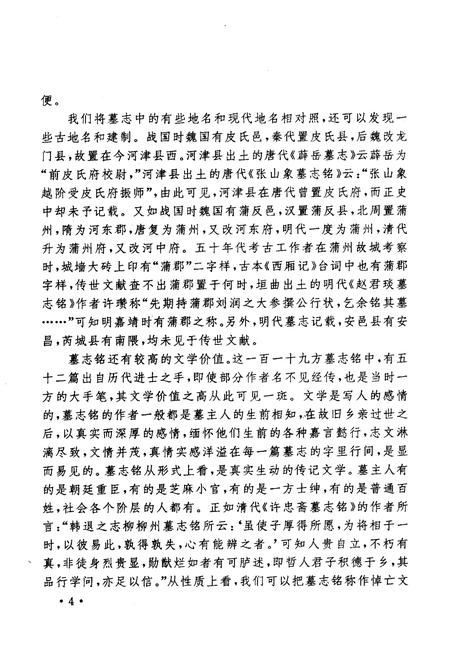 便。
我们将墓志中的有些地名和现代地名相对照,还可以发现一
些古地名和建制。战国时魏国有皮氏邑,秦代置皮氏县,后魏改龙
门县,故置在今河津县西。河津县出土的唐代《薛岳墓志》云薛岳为
“前皮氏府校尉,”河津县出土的唐代《张山象墓志铭》云:“张山象
越阶受皮氏府振师”,由此可见,河津县在唐代曾置皮氏府,而正史
中却未予记载。又如战国时魏国有蒲反邑,汉置蒲反县,北周置蒲
州,隋为河东郡,唐复为蒲州,又改河东府,明代一度为蒲州,清代
升为蒲州府,又改河中府。五十年代考古工作者在蒲州故城考察
时,城墙大砖上印有“蒲郡”二字样,古本《西厢记》台词中也有蒲郡
字样,传世文献查不出蒲郡置于何时,垣曲出土的明代《赵君琰墓
志铭》作者许瓒称“先期持蒲郡刘润之大参撰公行状,乞余铭其墓
……”可知明嘉靖时有蒲郡之称。另外,明代墓志记载,安邑县有安
昌,芮城县有南隈,均未见于传世文献。
墓志铭还有较高的文学价值。这一百一十九方墓志铭中,有五
十二篇出自历代进士之手,即使部分作者名不见经传,也是当时一
方的大手笔,其文学价值之高从此可见一斑。文学是写人的感情
的,墓志铭的作者一般都是墓主人的生前相知,在故旧乡亲过世之
后,以真实而深厚的感情,缅怀他们生前的各种嘉言懿行,志文淋
漓尽致,文情并茂,真情实感洋溢在每一篇墓志的字里行间,是显
而易见的。墓志铭从形式上看,是真实生动的传记文学。墓主人有
的是朝廷重臣,有的是芝麻小官,有的是一方士绅,有的是普通百
姓,社会各个阶层的人都有。正如清代《许忠斋墓志铭》的作者所
言:“韩退之志柳柳州墓铭所云:‘虽使子厚得所愿,为将相于一
时,以彼易此,孰得孰失,心有能辨之者。’可知人贵自立,不朽有
真,非徒身烈贵显,勋猷烂如者有可胪述,即哲人君子积德于乡,其
品行学问,亦足以信。”从性质上看,我们可以把墓志铭称作悼亡文
·4·